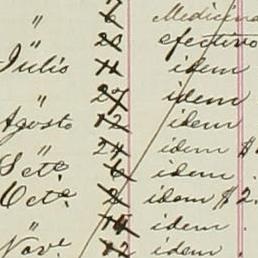 " 6 Medicina
" 20 efectivo
Julio 11 idem
" 27 idem
Agosto 12 idem
" 24 idem $
Sete. 6 idem .
Octe. 2 idem $2.
" 14 idem .
Nove. 12 idem .